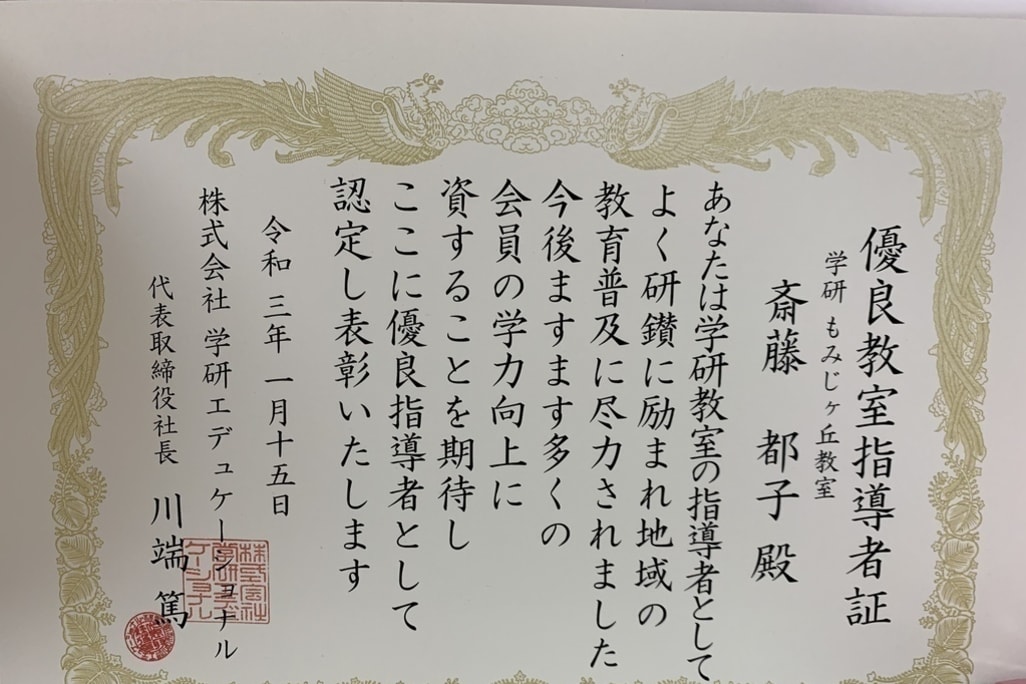 優良教室指導者証
学研 もみじヶ丘教室
斎藤 都子 殿
あなたは学研教室の指導者として
よく研鑽に励まれ地域の
教育普及に尽力されました
今後ますます多くの
会員の学力向上に
資することを期待し
ここに優良指導者として
認定し表彰いたします
令和 三年 一月十五日
株式会社 学研エデュケーショナル
代表取締役社長 川端 篤
株式会社
学研エデュ
ケーショナル